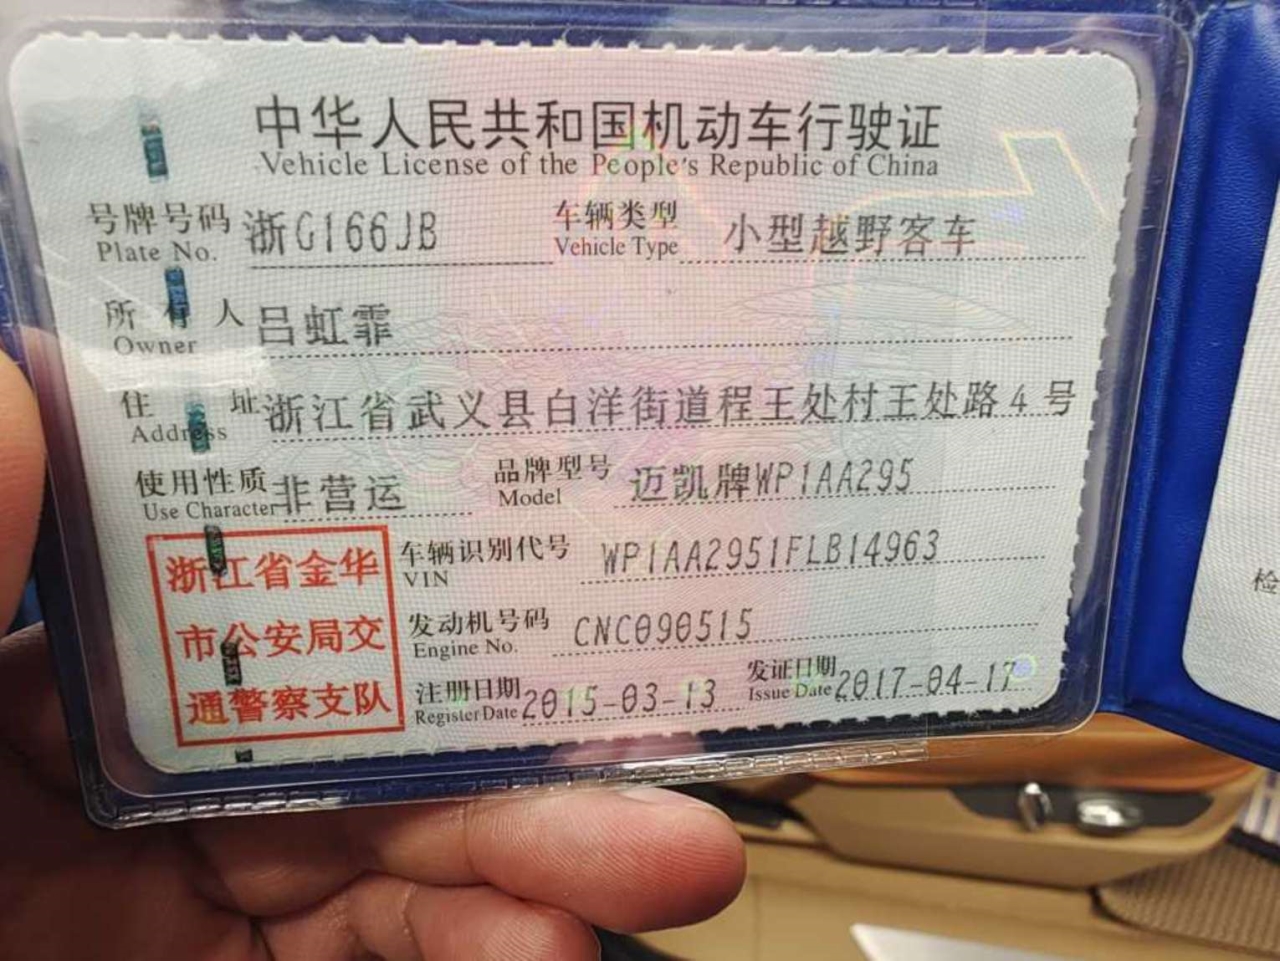 中华人民共和国机动车行驶证
Vehicle License of the People's Republic of China
号牌号码 浙G166JB 车辆类型 小型越野客车
Plate No. Vehicle Type
所有人 吕虹霏
Owner
住址 浙江省武义县白洋街道程王处村王处路4号
Address
使用性质 非营运 品牌型号 迈凯牌WP1AA295
Use Character Model
浙江省金华
市公安局交
通警察支队
车辆识别代号 WP1AA2951FLB14963
VIN
发动机号码 CNC090515
Engine No.
注册日期 2015-03-13 发证日期 2017-04-17
Register Date Issue Date
检